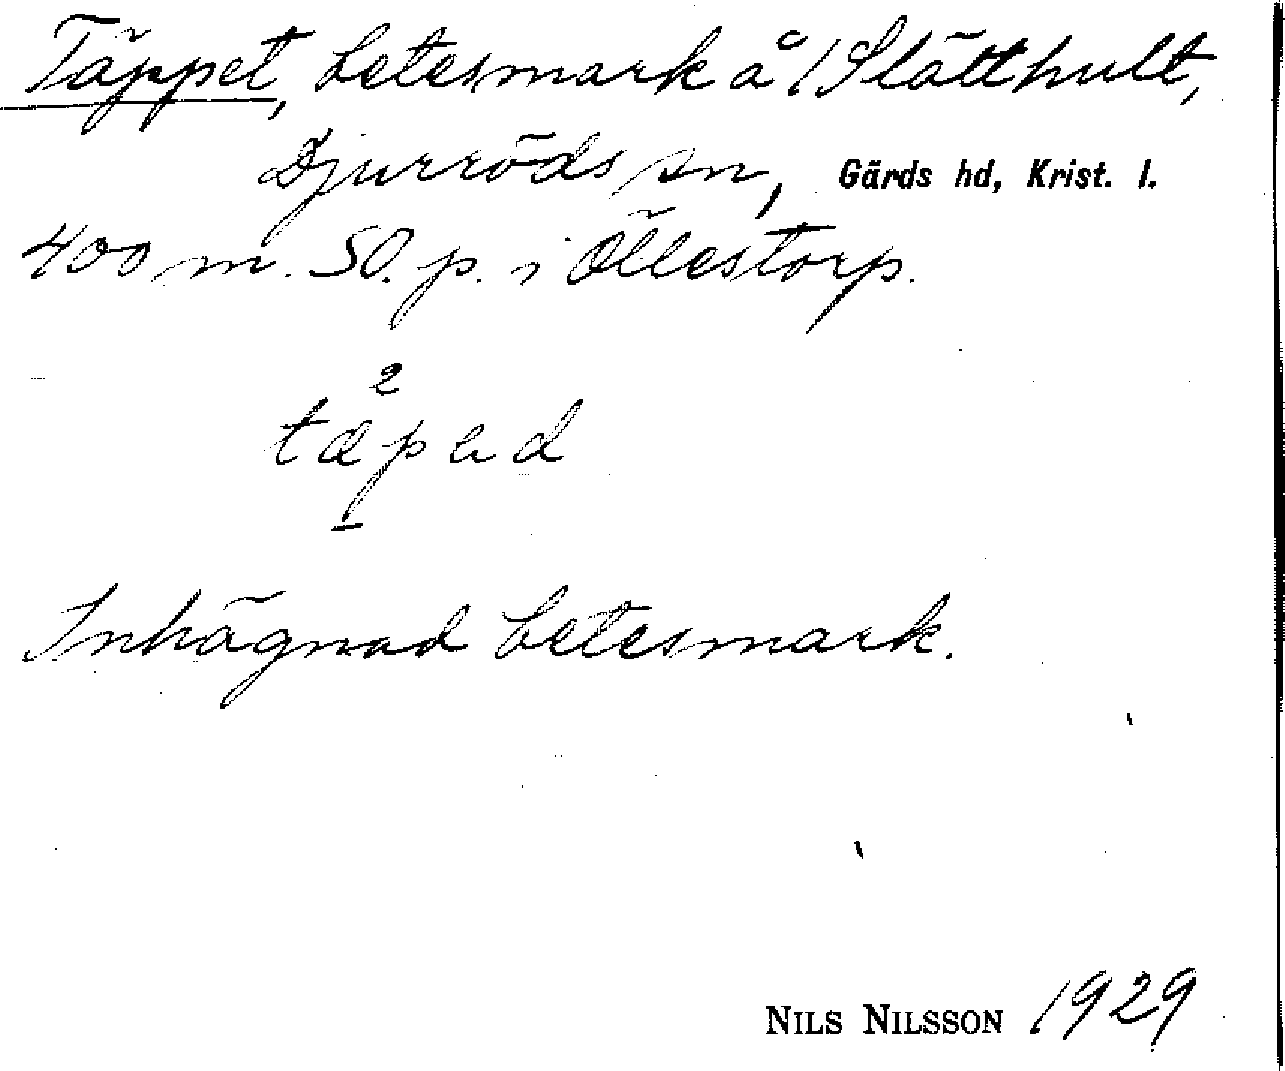 Täppet, betesmark å 1 Slätthult,
Djurröds sn, Gärds hd, Krist. l.
400 m. SO. p. i Öllestorp.
2
täpəd
Inhägnad betesmark.
NILS NILSSON 1929